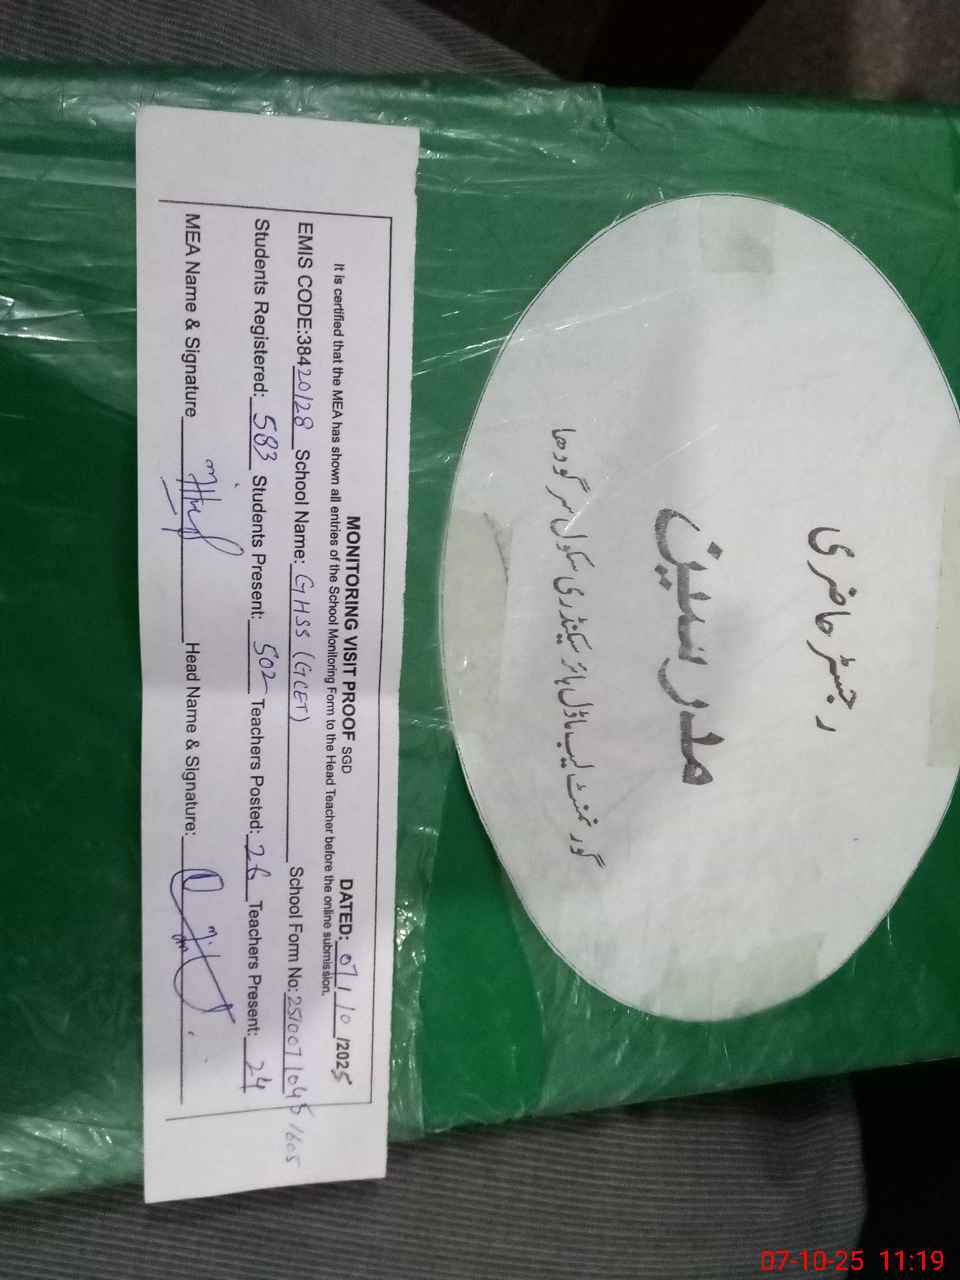 MONITORING VISIT PROOF SGD DATED: 07/10/2025
It is certified that the MEA has shown all entries of the School Monitoring Form to the Head Teacher before the online submission.
EMIS CODE:38420128 School Name: GHSS (GCET) School Form No: 251007104
Students Registered: 583 Students Present: 502 Teachers Posted: 26 Teachers Present: 24
MEA Name & Signature Head Name & Signature:
رجسٹر حاضری
مدرسین
گورنمنٹ لیب ماڈل ہائر سیکنڈری سکول سرگودھا
07-10-25 11:19